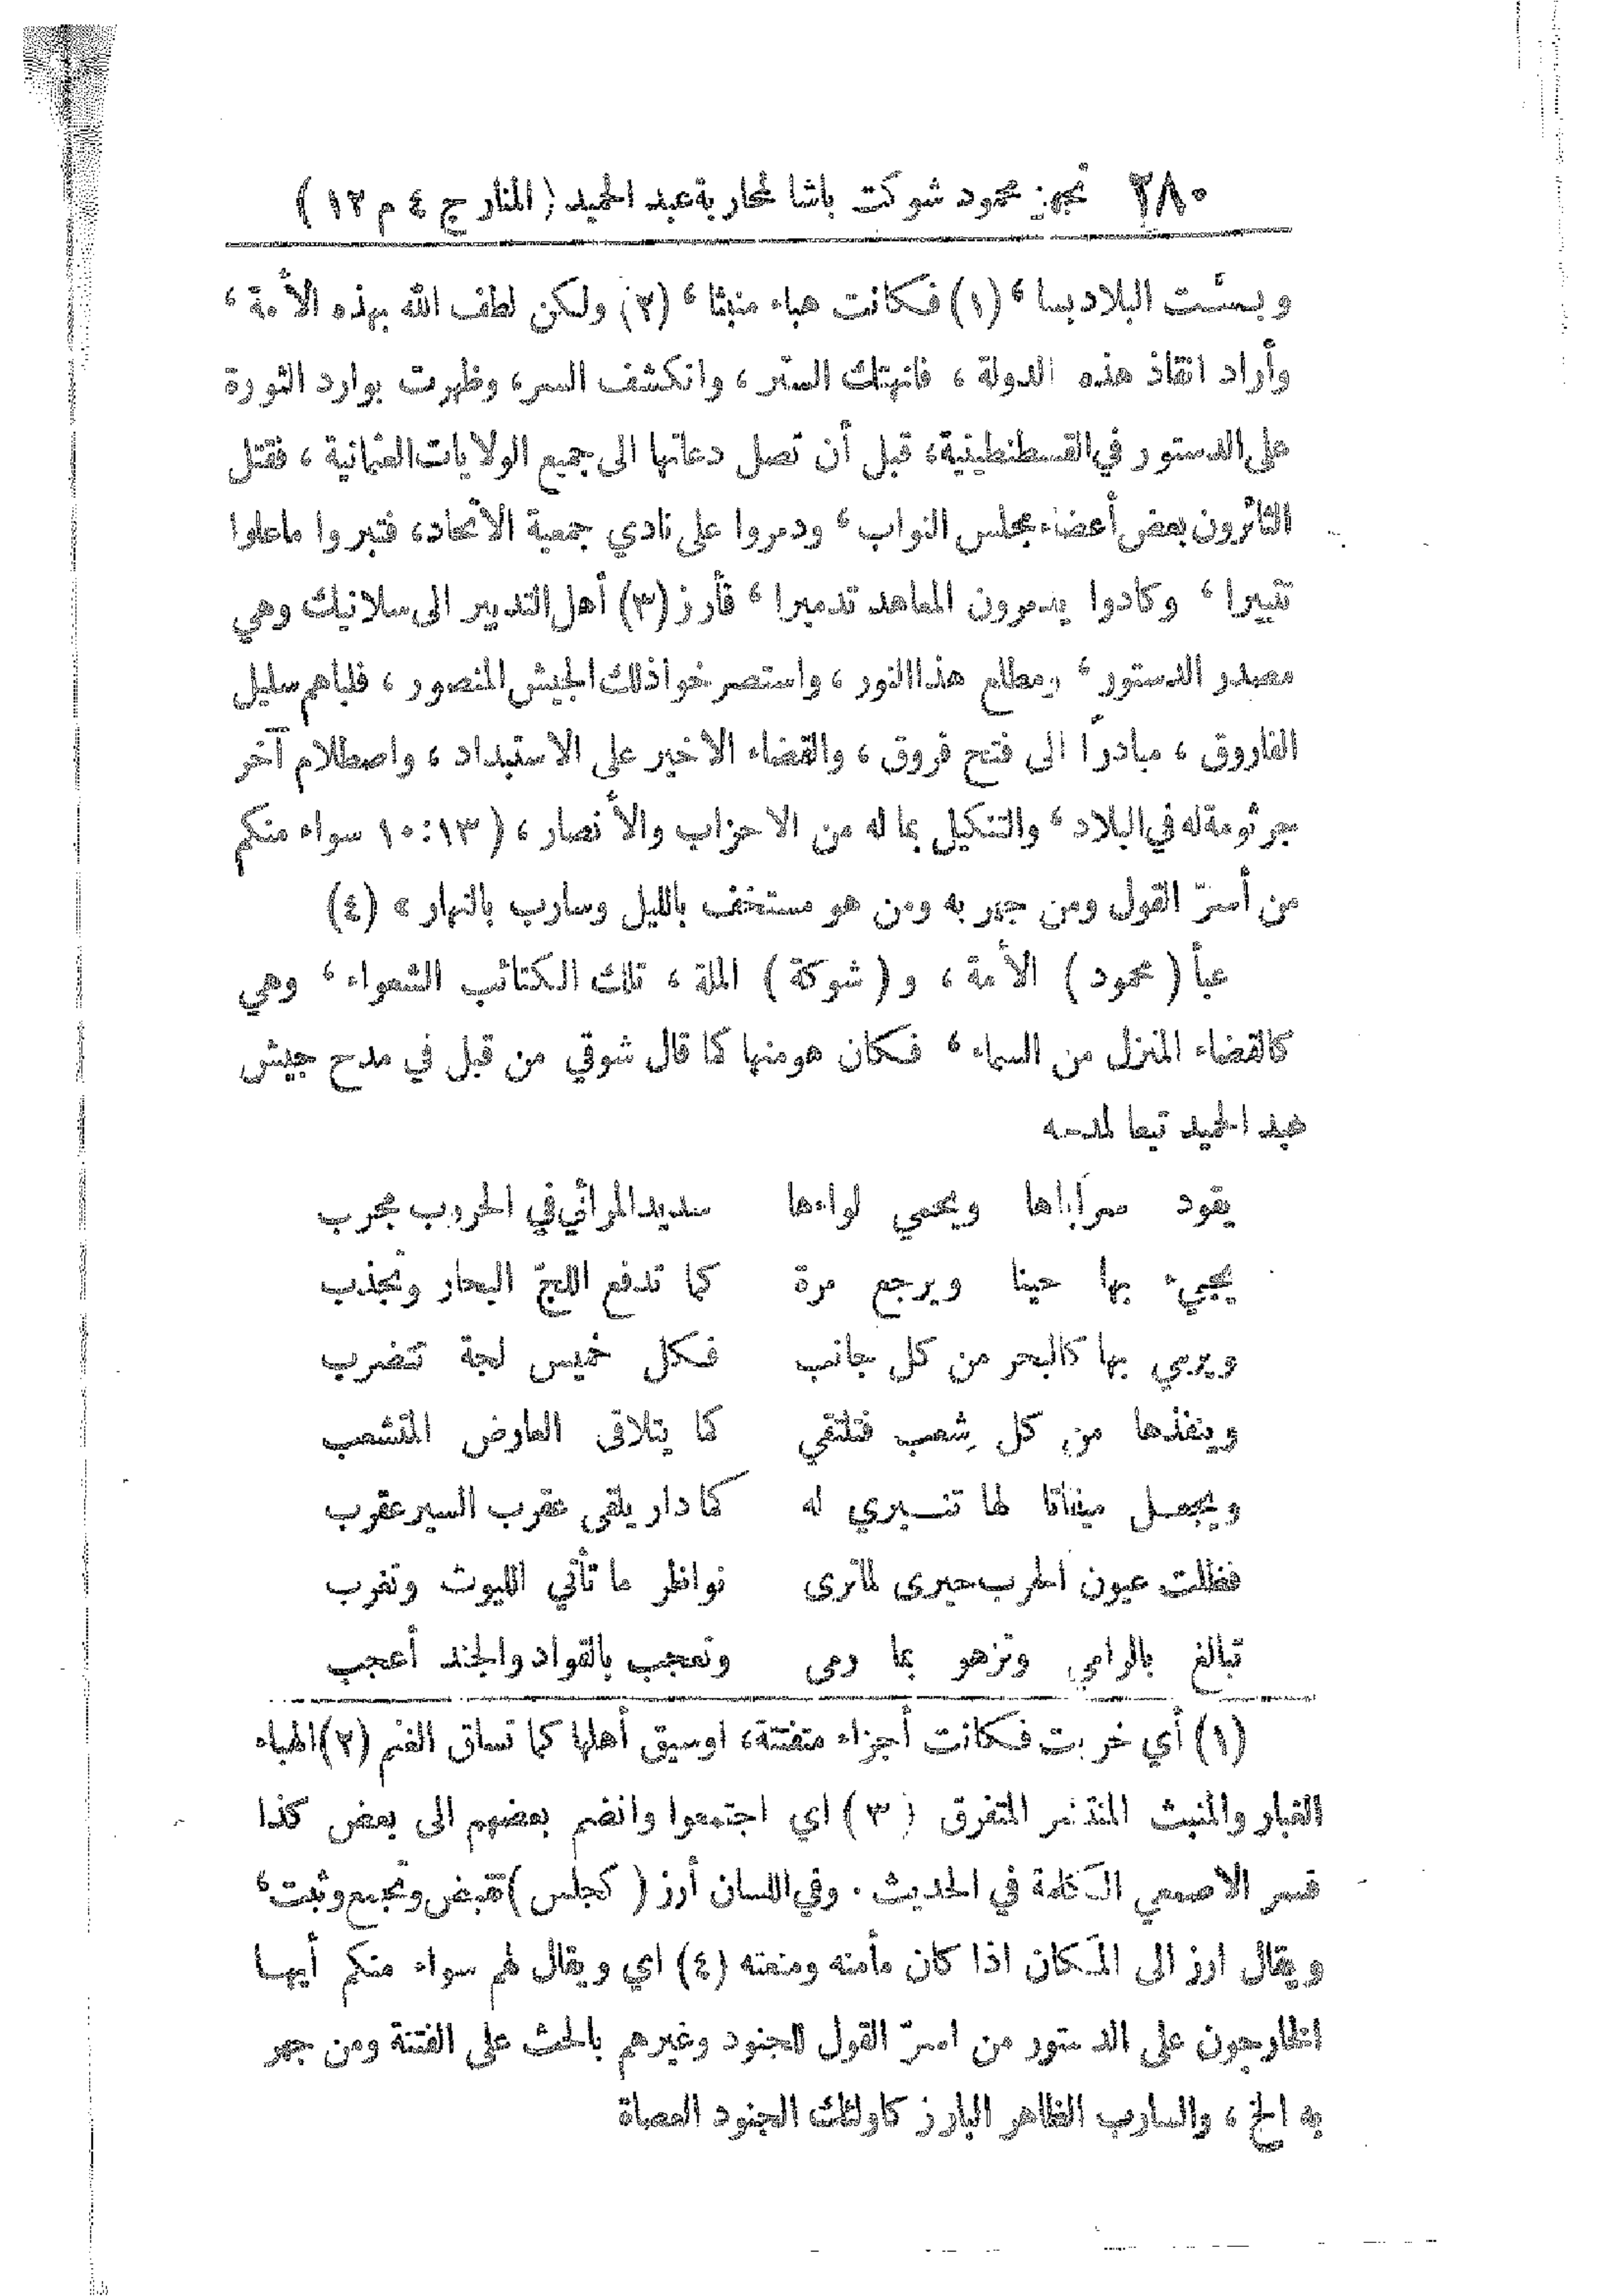 ٢٨٠ تجهيز محمود شوكت باشا لمحاربة عبد الحميد (المنار ج ٤ م ١٢)
وبست البلاد بسا، (١) فكانت هباء منبثا، (٢) ولكن لطف الله بهذه الأمة،
وأراد انقاذ هذه الدولة، فانهتك الستر، وانكشف السر، وظهرت بوارد الثورة
على الدستور في القسطنطينية، قبل أن تصل دعاتها الى جميع الولايات العثمانية، فقتل
الثائرون بعض أعضاء مجلس النواب، ودمروا على نادي جمعية الاتحاد، فتبروا ماعلوا
تتبيرا، وكادوا يدمرون المعاهد تدميرا، فأرز (٣) أهل التدبير الى سلانيك وهي
مصدر الدستور، ومطلع هذا النور، واستصرخوا ذلك الجيش المنصور، فلباهم سليل
الفاروق، مبادرًا الى فتح فروق، والقضاء الاخير على الاستبداد، واصطلام آخر
جرثومة له في البلاد، والتنكيل بما له من الاحزاب والأنصار، (١٣:١٠ سواء منكم
من أسرّ القول ومن جهر به ومن هو مستخف بالليل وسارب بالنهار» (٤)
عبأ (محمود) الأمة، و (شوكة) الملة، تلك الكتائب الشعواء، وهي
كالقضاء المنزل من السماء، فكان هو منها كما قال شوقي من قبل في مدح جيش
عبد الحميد تبعا لمدحه
يقود سراياها ويحمي لواءها سديد المرائي في الحروب مجرب
يجيء بها حينا ويرجع مرة كما تدفع اللجّ البحار وتجذب
ويرمي بها كالبحر من كل جانب فكل خميس لجة تتضرب
وينفذها من كل شِعب فتلتقي كما يتلاقى العارض المتشعب
ويجعل ميقاتا لها تنبري له كما دار يلقى عقرب السير عقرب
فظلت عيون الحرب حيرى لما ترى نواظر ما تأتي الليوث وتغرب
تبالغ بالرامي وتزهو بما رمى وتعجب بالقواد والجند أعجب
(١) أي خربت فكانت أجزاء متفتتة، اوسيق أهلها كما تساق الغنم (٢) الهباء
الغبار والمنبث المنتشر المتفرق (٣) اي اجتمعوا وانضم بعضهم الى بعض كذا
فسر الاصمعي الكلمة في الحديث. وفي اللسان أرز (كجلس) تقبض وتجمع وثبت،
ويقال ارز الى المكان اذا كان مأمنه ومنعته (٤) اي ويقال لهم سواء منكم أيها
الخارجون على الدستور من اسرّ القول للجنود وغيرهم بالحث على الفتنة ومن جهر
به الخ، والسارب الظاهر البارز كاولئك الجنود العصاة